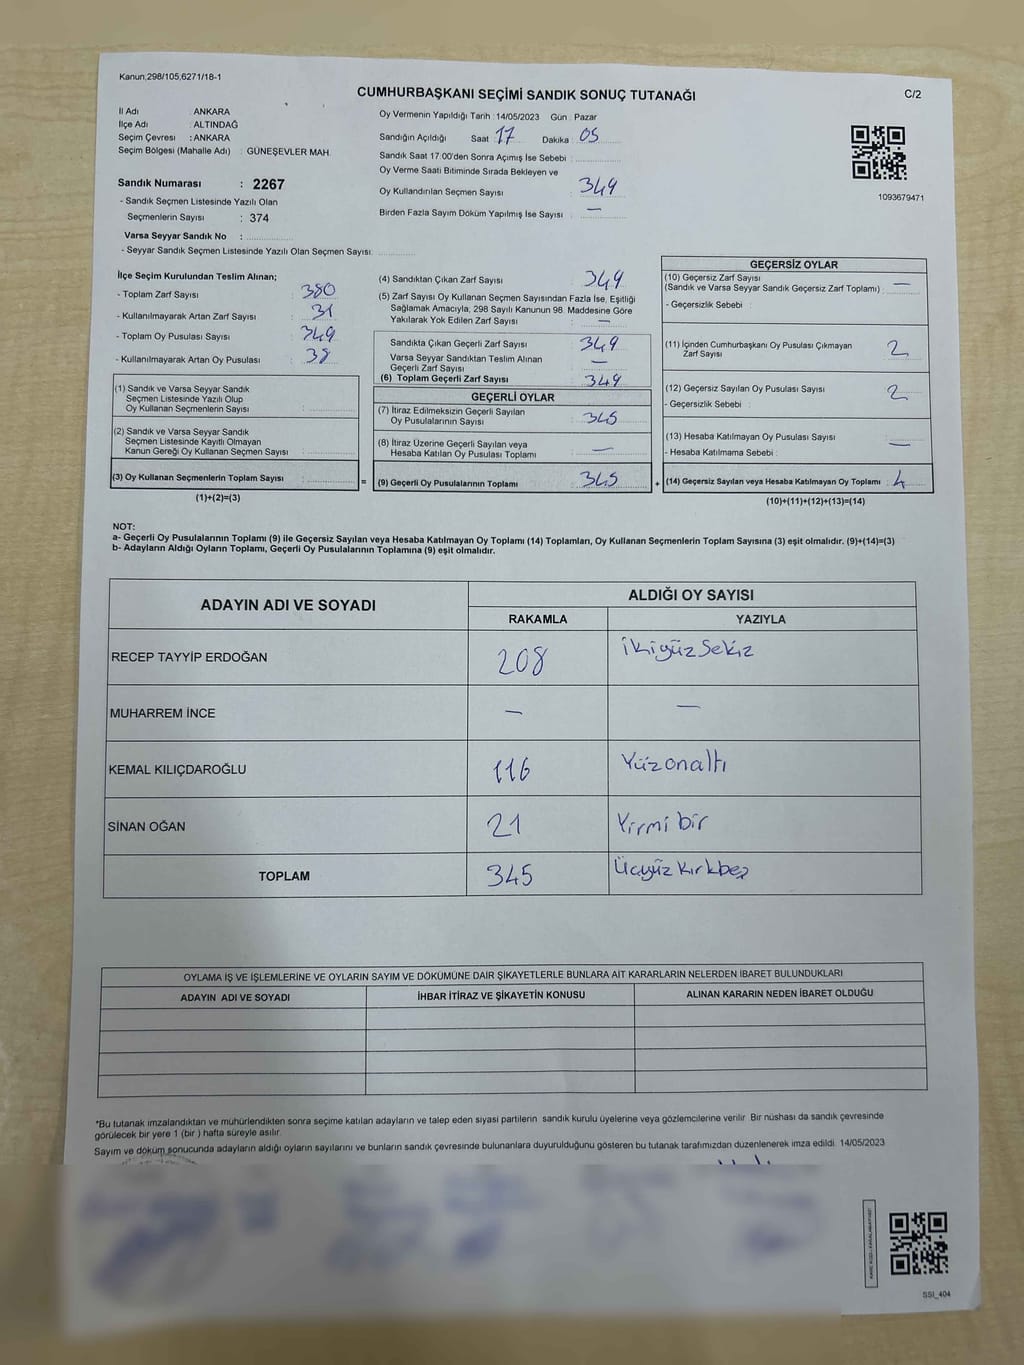 Kanun,298/105,6271/18-1
CUMHURBAŞKANI SEÇİMİ SANDIK SONUÇ TUTANAĞI
C/2
İl Adı : ANKARA
İlçe Adı : ALTINDAĞ
Seçim Çevresi : ANKARA
Seçim Bölgesi (Mahalle Adı) : GÜNEŞEVLER MAH.
Sandık Numarası : 2267
- Sandık Seçmen Listesinde Yazılı Olan
Seçmenlerin Sayısı : 374
Varsa Seyyar Sandık No :
- Seyyar Sandık Seçmen Listesinde Yazılı Olan Seçmen Sayısı:
Oy Vermenin Yapıldığı Tarih : 14/05/2023 Gün : Pazar
Sandığın Açıldığı Saat 17 Dakika 05
Sandık Saat 17:00'den Sonra Açımış İse Sebebi :
Oy Verme Saati Bitiminde Sırada Bekleyen ve
Oy Kullandırılan Seçmen Sayısı : 349
Birden Fazla Sayım Döküm Yapılmış İse Sayısı : —
1093679471
İlçe Seçim Kurulundan Teslim Alınan;
- Toplam Zarf Sayısı : 380
- Kullanılmayarak Artan Zarf Sayısı : 31
- Toplam Oy Pusulası Sayısı : 349
- Kullanılmayarak Artan Oy Pusulası : 38
(1) Sandık ve Varsa Seyyar Sandık
Seçmen Listesinde Yazılı Olup
Oy Kullanan Seçmenlerin Sayısı :
(2) Sandık ve Varsa Seyyar Sandık
Seçmen Listesinde Kayıtlı Olmayan
Kanun Gereği Oy Kullanan Seçmen Sayısı :
(3) Oy Kullanan Seçmenlerin Toplam Sayısı :
(1)+(2)=(3)
(4) Sandıktan Çıkan Zarf Sayısı : 349
(5) Zarf Sayısı Oy Kullanan Seçmen Sayısından Fazla İse, Eşitliği
Sağlamak Amacıyla; 298 Sayılı Kanunun 98. Maddesine Göre
Yakılarak Yok Edilen Zarf Sayısı : —
Sandıkta Çıkan Geçerli Zarf Sayısı : 349
Varsa Seyyar Sandıktan Teslim Alınan
Geçerli Zarf Sayısı : —
(6) Toplam Geçerli Zarf Sayısı : 349
GEÇERLİ OYLAR
(7) İtiraz Edilmeksizin Geçerli Sayılan
Oy Pusulalarının Sayısı : 345
(8) İtiraz Üzerine Geçerli Sayılan veya
Hesaba Katılan Oy Pusulası Toplamı : —
= (9) Geçerli Oy Pusulalarının Toplamı : 345
GEÇERSİZ OYLAR
(10) Geçersiz Zarf Sayısı
(Sandık ve Varsa Seyyar Sandık Geçersiz Zarf Toplamı) : —
- Geçersizlik Sebebi :
(11) İçinden Cumhurbaşkanı Oy Pusulası Çıkmayan
Zarf Sayısı : 2
(12) Geçersiz Sayılan Oy Pusulası Sayısı : 2
- Geçersizlik Sebebi :
(13) Hesaba Katılmayan Oy Pusulası Sayısı : —
- Hesaba Katılmama Sebebi :
+ (14) Geçersiz Sayılan veya Hesaba Katılmayan Oy Toplamı : 4
(10)+(11)+(12)+(13)=(14)
NOT:
a- Geçerli Oy Pusulalarının Toplamı (9) ile Geçersiz Sayılan veya Hesaba Katılmayan Oy Toplamı (14) Toplamları, Oy Kullanan Seçmenlerin Toplam Sayısına (3) eşit olmalıdır. (9)+(14)=(3)
b- Adayların Aldığı Oyların Toplamı, Geçerli Oy Pusulalarının Toplamına (9) eşit olmalıdır.
ADAYIN ADI VE SOYADI
ALDIĞI OY SAYISI
RAKAMLA YAZIYLA
RECEP TAYYİP ERDOĞAN 208 ikiyüz Sekiz
MUHARREM İNCE — —
KEMAL KILIÇDAROĞLU 116 Yüz onaltı
SİNAN OĞAN 21 Yirmi bir
TOPLAM 345 Üçyüz Kırkbeş
OYLAMA İŞ VE İŞLEMLERİNE VE OYLARIN SAYIM VE DÖKÜMÜNE DAİR ŞİKAYETLERLE BUNLARA AİT KARARLARIN NELERDEN İBARET BULUNDUKLARI
ADAYIN ADI VE SOYADI İHBAR İTİRAZ VE ŞİKAYETİN KONUSU ALINAN KARARIN NEDEN İBARET OLDUĞU
*Bu tutanak imzalandıktan ve mühürlendikten sonra seçime katılan adayların ve talep eden siyasi partilerin sandık kurulu üyelerine veya gözlemcilerine verilir. Bir nüshası da sandık çevresinde
görülecek bir yere 1 (bir ) hafta süreyle asılır.
Sayım ve döküm sonucunda adayların aldığı oyların sayılarını ve bunların sandık çevresinde bulunanlara duyurulduğunu gösteren bu tutanak tarafımızdan düzenlenerek imza edildi. 14/05/2023
SSI_404